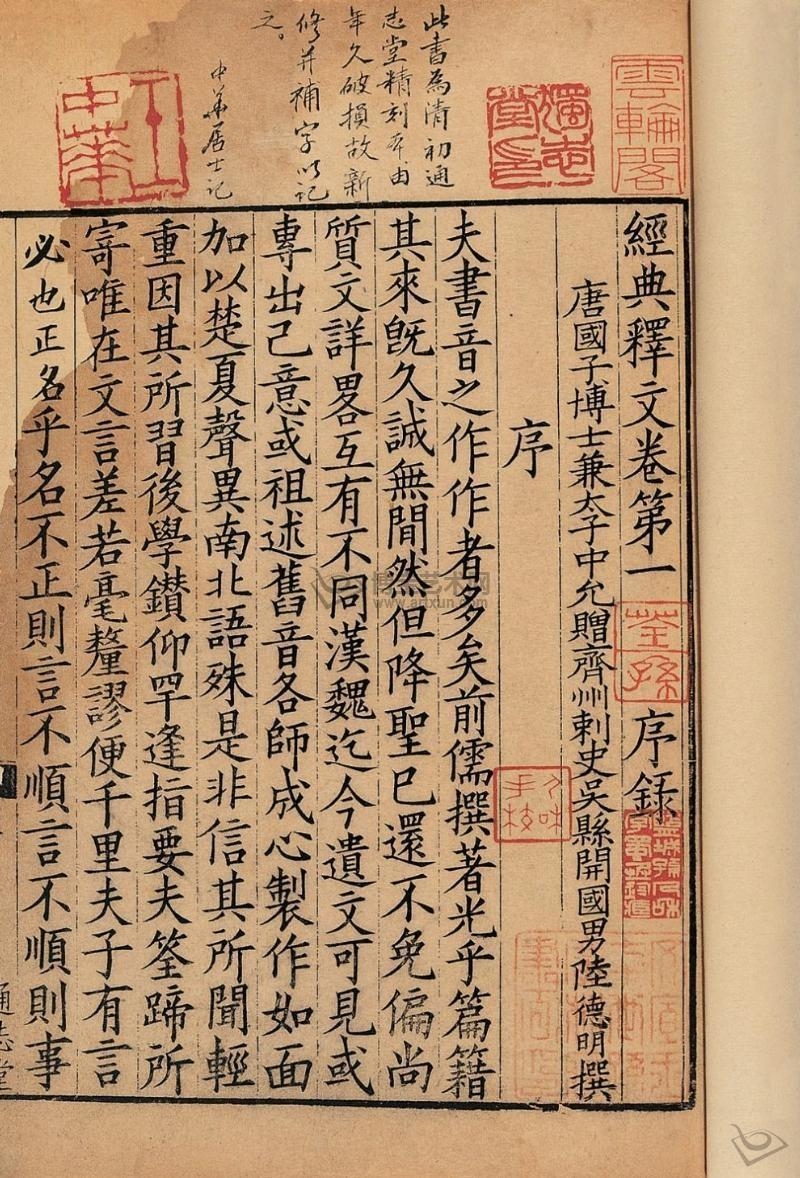 此書為清初通
志堂精刻本由
年久破損故新
修并補字以記
之。
中華居士記
雲輪閣
經典釋文卷第一
荃孫
序録
唐國子博士兼太子中允贈齊州刺史吳縣開國男陸德明撰
序
夫書音之作作者多矣前儒撰著光乎篇籍
其來旣久誠無間然但降聖已還不免偏尚
質文詳畧互有不同漢魏迄今遺文可見或
專出己意或祖述舊音各師成心製作如面
加以楚夏聲異南北語殊是非信其所聞輕
重因其所習後學鑚仰罕逢指要夫筌蹄所
寄唯在文言差若毫釐謬便千里夫子有言
必也正名乎名不正則言不順言不順則事
通志堂